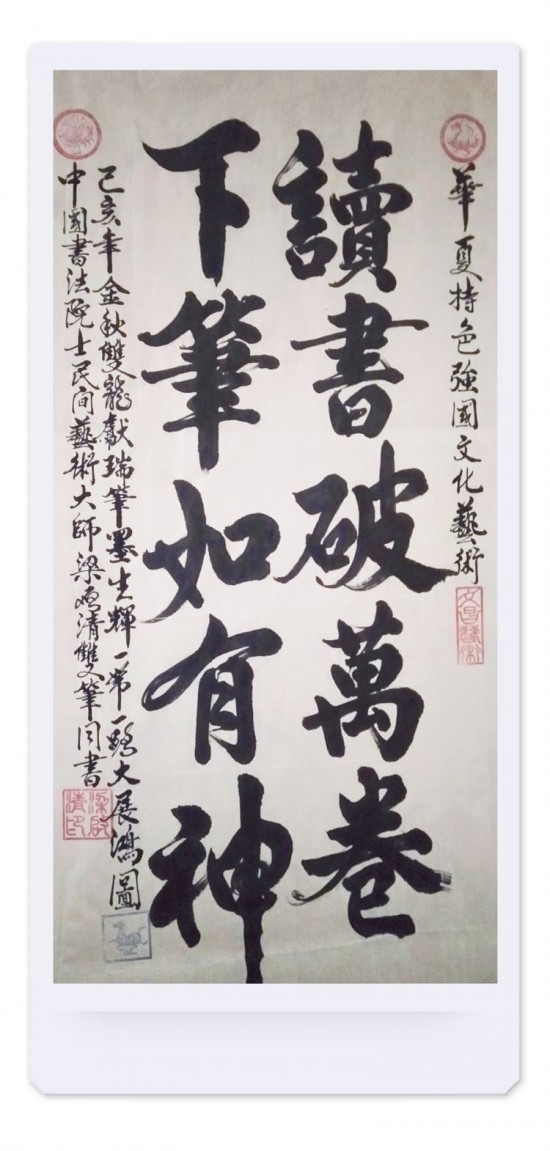 華夏特色強國文化藝術
讀書破萬卷
下筆如有神
己亥年金秋雙龍獻瑞筆墨生輝一帶一路大展鴻圖
中國書法院士民間藝術大師梁啟清雙筆同書
文昌藝術
梁啟清印